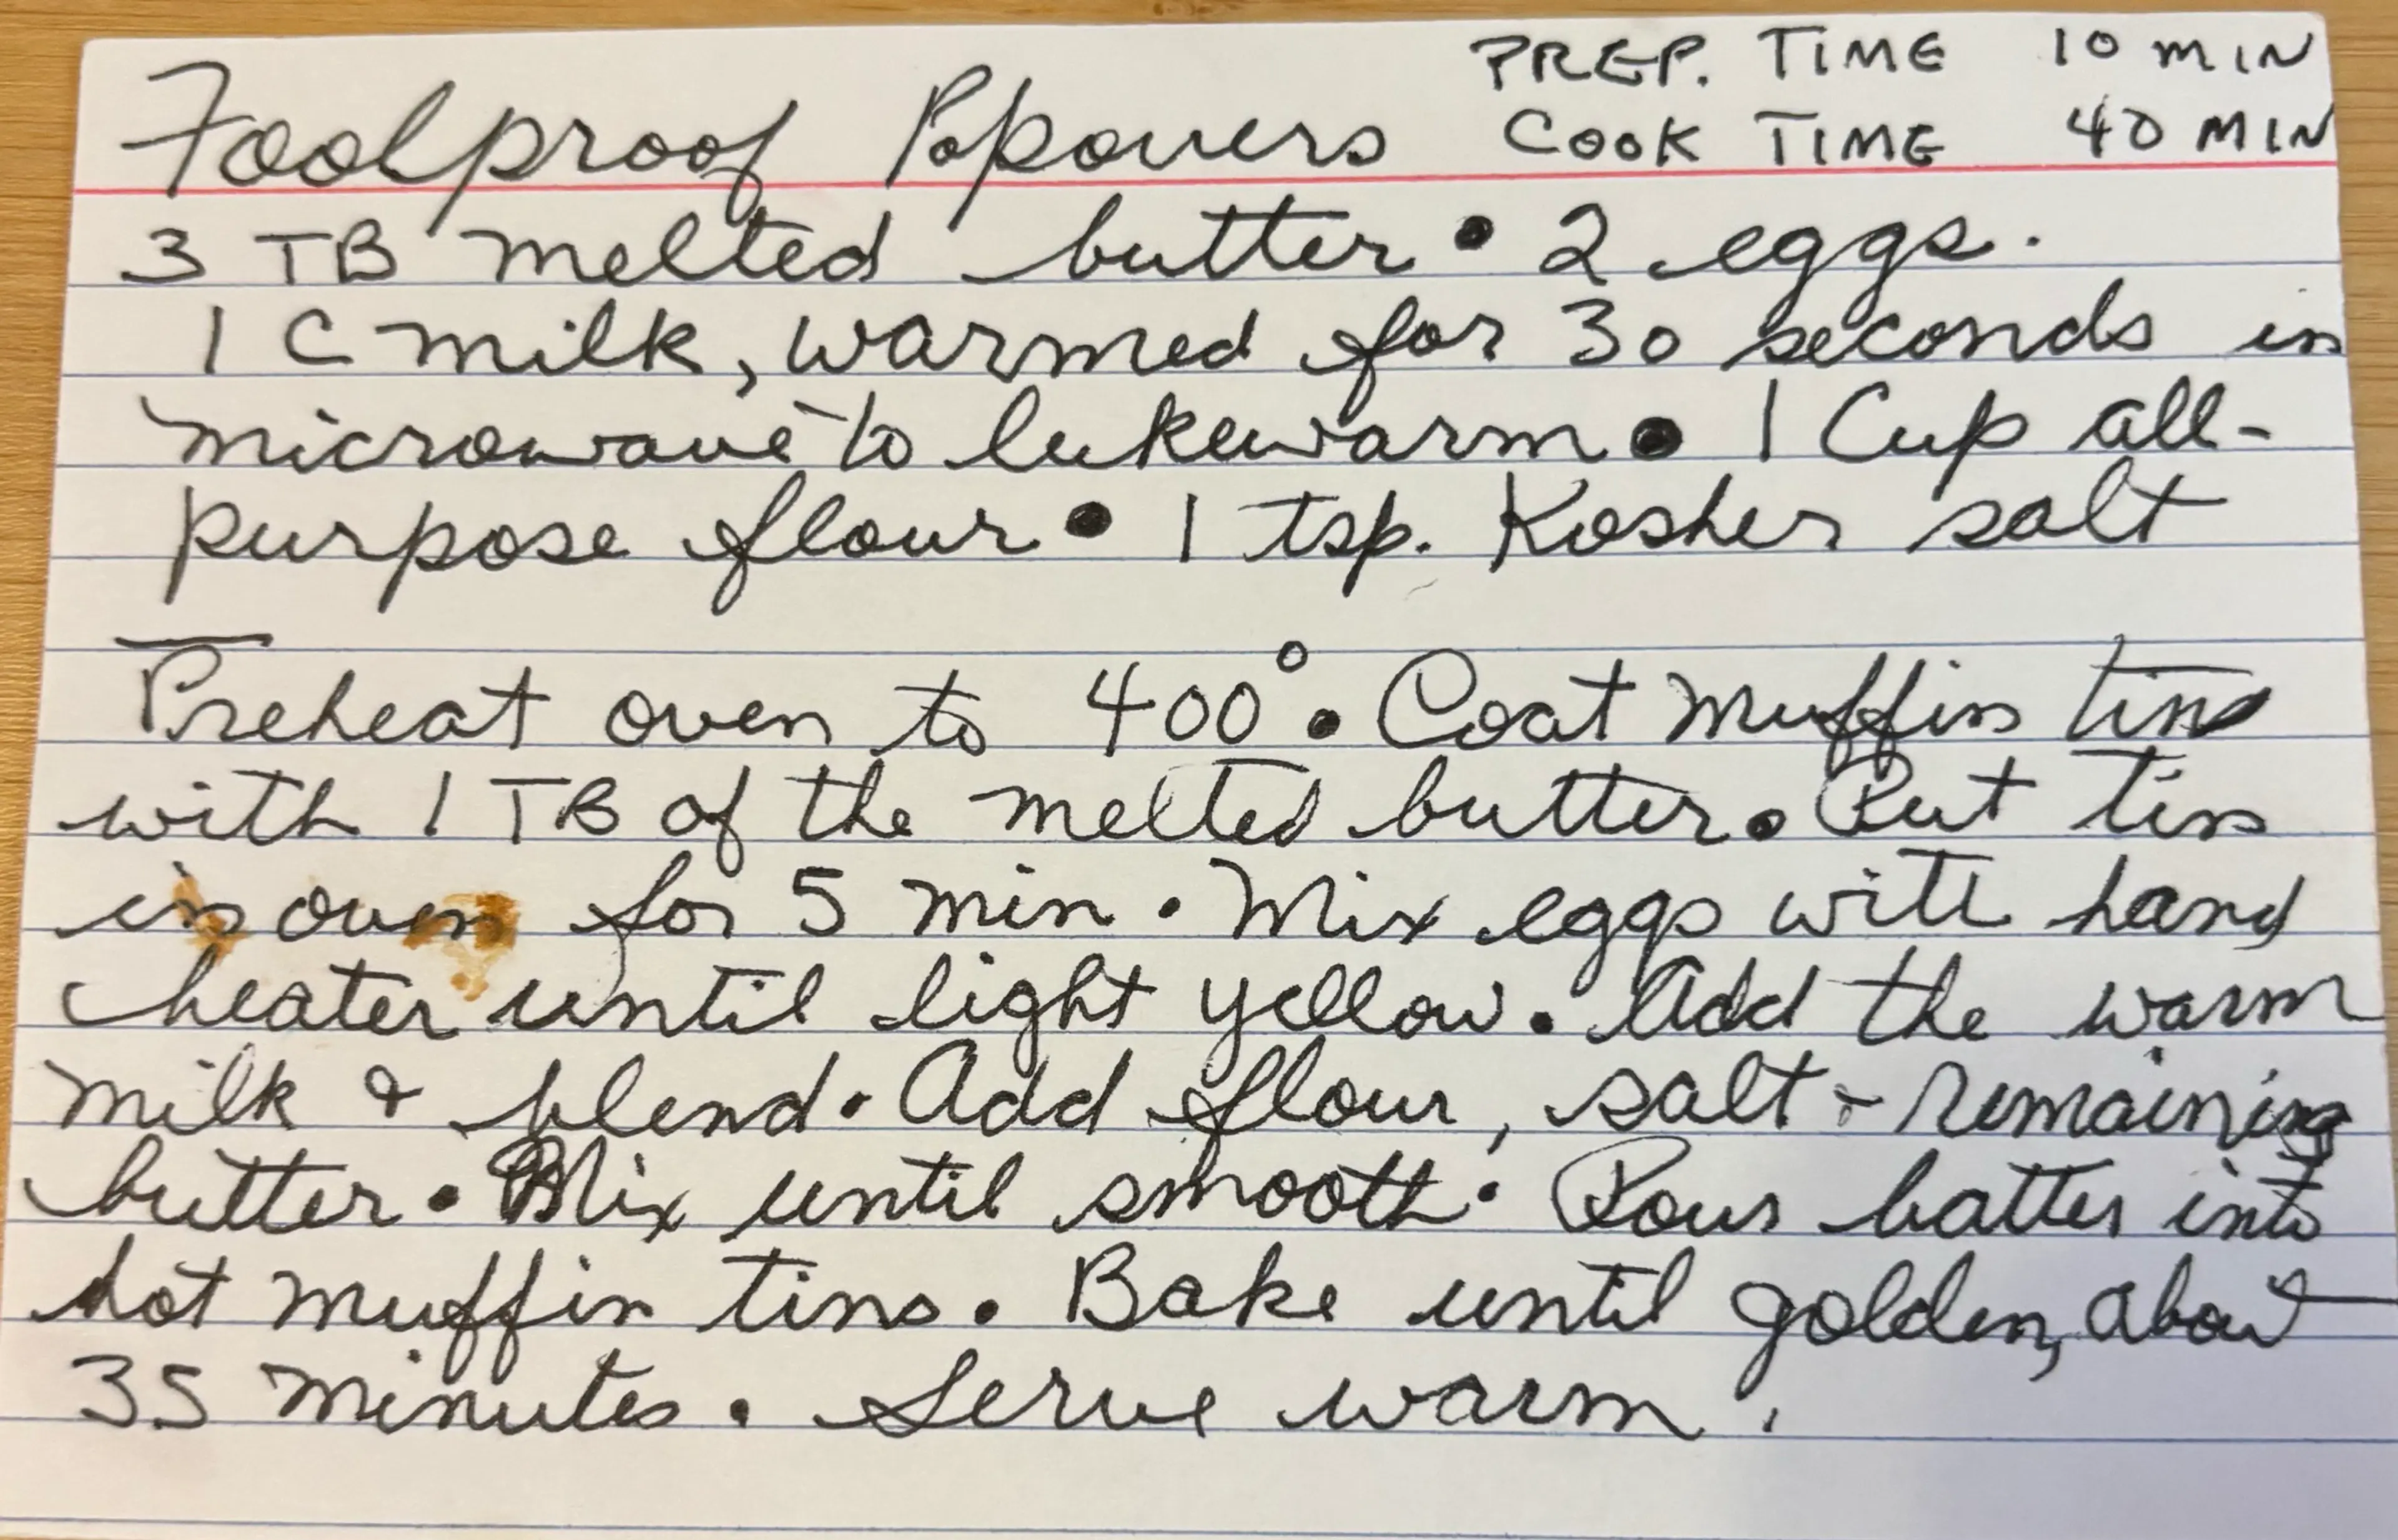 Foolproof Popovers PREP. TIME 10 MIN
COOK TIME 40 MIN
3 TB melted butter • 2 eggs.
1 C milk, warmed for 30 seconds in
microwave to lukewarm • 1 Cup all-
purpose flour • 1 tsp. Kosher salt
Preheat oven to 400° • Coat muffin tins
with 1 TB of the melted butter. Put tin
in oven for 5 min. Mix eggs with hand
beater until light yellow. Add the warm
milk & blend. Add flour, salt & remaining
butter. Mix until smooth. Pour batter into
hot muffin tins. Bake until golden, about
35 minutes. Serve warm.